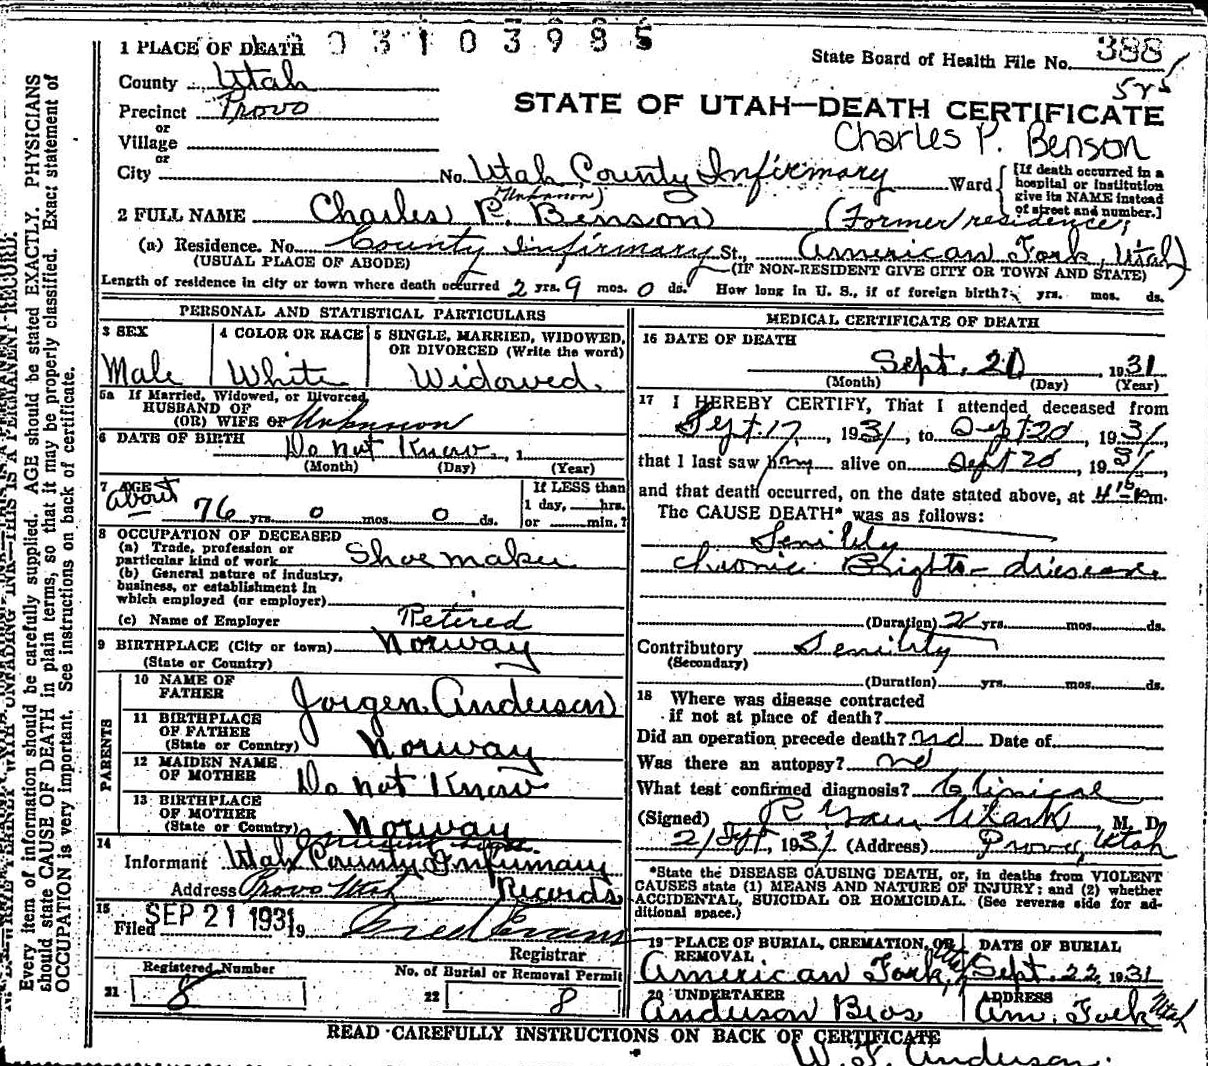 3 1 0 3 9 8 5
State Board of Health File No. 388
525
STATE OF UTAH—DEATH CERTIFICATE
Charles P. Benson
1 PLACE OF DEATH
County Utah
Precinct Provo
or
Village
or
City No. Utah County Infirmary Ward [If death occurred in a hospital or institution give its NAME instead of street and number.]
(Unknown)
2 FULL NAME Charles P. Benson (Former residence,
(a) Residence. No. County Infirmary St., American Fork, Utah)
(USUAL PLACE OF ABODE) (IF NON-RESIDENT GIVE CITY OR TOWN AND STATE)
Length of residence in city or town where death occurred 2 yrs. 9 mos. 0 ds. How long in U. S., if of foreign birth? yrs. mos. ds.
PERSONAL AND STATISTICAL PARTICULARS
3 SEX
Male
4 COLOR OR RACE
White
5 SINGLE, MARRIED, WIDOWED,
OR DIVORCED (Write the word)
Widowed.
5a If Married, Widowed, or Divorced
HUSBAND OF
(OR) WIFE OF Unknown
6 DATE OF BIRTH Do not Know, 1
(Month) (Day) (Year)
7 AGE
About 76 yrs. 0 mos. 0 ds.
If LESS than
1 day, hrs.
or min.?
8 OCCUPATION OF DECEASED
(a) Trade, profession or
particular kind of work Shoe maker
(b) General nature of industry,
business, or establishment in
which employed (or employer)
(c) Name of Employer Retired
9 BIRTHPLACE (City or town) Norway
(State or Country)
PARENTS
10 NAME OF
FATHER Jorgen Anderson
11 BIRTHPLACE
OF FATHER
(State or Country) Norway
12 MAIDEN NAME
OF MOTHER Do not Know
13 BIRTHPLACE
OF MOTHER
(State or Country) Norway
14
Informant Utah County Infirmary
Address Provo Utah Records
15
Filed SEP 21 1931 19 Fred Evans
Registrar
Registered Number
21 8
No. of Burial or Removal Permit
22 8
MEDICAL CERTIFICATE OF DEATH
16 DATE OF DEATH
Sept. 20, 1931
(Month) (Day) (Year)
17 I HEREBY CERTIFY, That I attended deceased from
Sept 17, 1931, to Sept 20, 1931,
that I last saw him alive on Sept 20, 1931,
and that death occurred, on the date stated above, at m.
The CAUSE DEATH* was as follows:
Senility
chronic Brights disease
(Duration) 2 yrs. mos. ds.
Contributory Senility
(Secondary)
(Duration) yrs. mos. ds.
18 Where was disease contracted
if not at place of death?
Did an operation precede death? no Date of
Was there an autopsy? no
What test confirmed diagnosis? Clinical
(Signed) Clark M. D.
21 Sept, 1931 (Address) Provo, Utah
*State the DISEASE CAUSING DEATH, or, in deaths from VIOLENT
CAUSES state (1) MEANS AND NATURE OF INJURY; and (2) whether
ACCIDENTAL, SUICIDAL OR HOMICIDAL. (See reverse side for ad-
ditional space.)
19 PLACE OF BURIAL, CREMATION, OR
REMOVAL
American Fork, Utah
DATE OF BURIAL
Sept. 22, 1931
20 UNDERTAKER
Anderson Bros
ADDRESS
Am. Fork Utah
READ CAREFULLY INSTRUCTIONS ON BACK OF CERTIFICATE
W. F. Anderson.
Every item of information should be carefully supplied. AGE should be stated EXACTLY. PHYSICIANS
should state CAUSE OF DEATH in plain terms, so that it may be properly classified. Exact statement of
OCCUPATION is very important. See instructions on back of certificate.